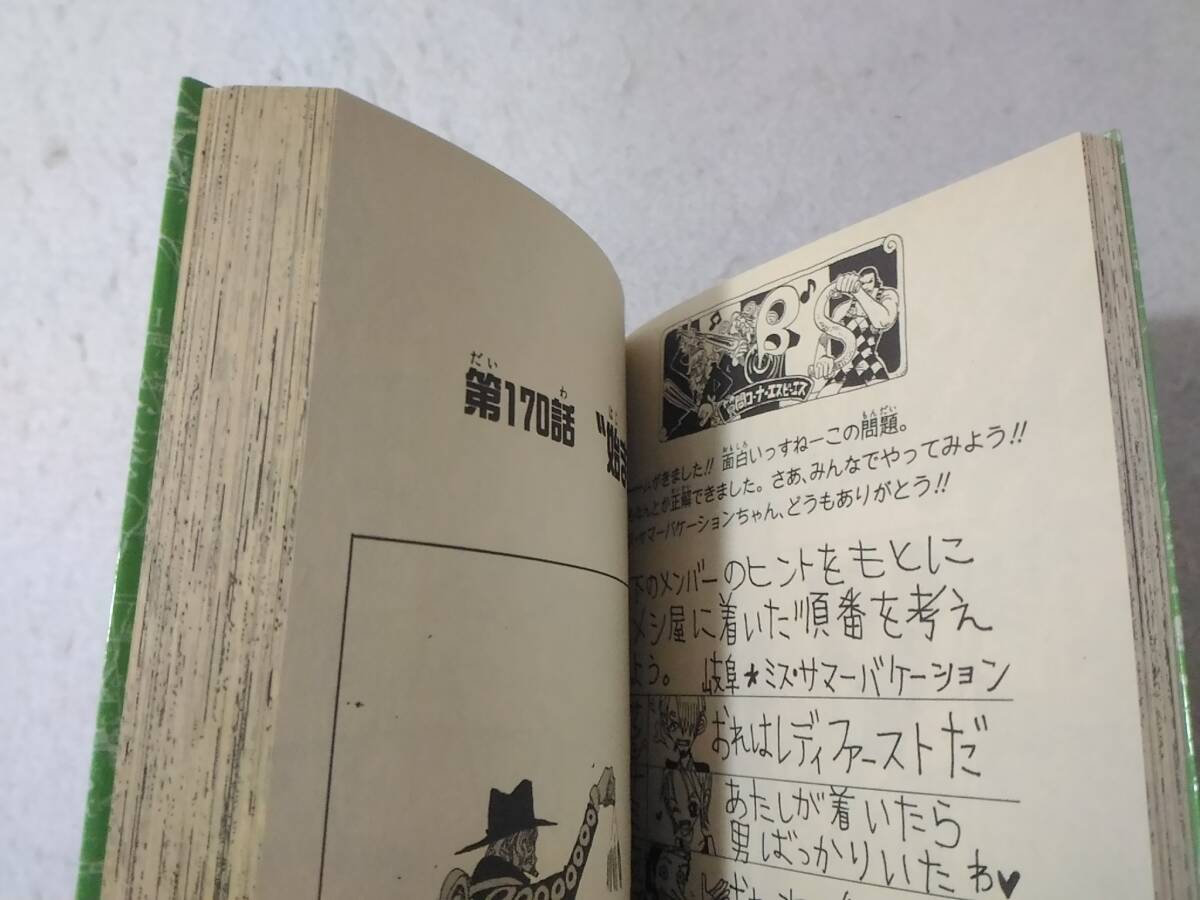 第170話 "始
だい わ はじ
B'S
質問コーナー・エスビーエス
がきました!! 面白いっすねーこの問題。
なんとか正解できました。さあ、みんなでやってみよう!!
サマーバケーションちゃん、どうもありがとう!!
下のメンバーのヒントをもとに
メシ屋に着いた順番を考え
よう。 岐阜★ミス・サマーバケーション
おれはレディファーストだ
あたしが着いたら
男ばっかりいたわ♥